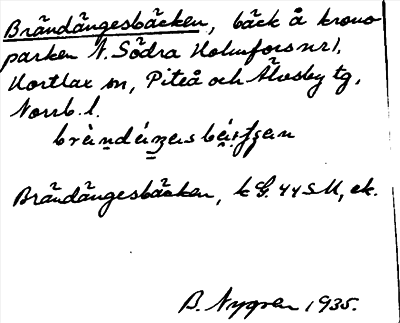 Brändängesbäcken, bäck å krono
parken N. Södra Holmfors nr 1,
Hortlax sn, Piteå och Älvsby tg,
Norrb. l.
Brändängesbäcken, k G. 44 SU, ek.
B. Nygren 1935.